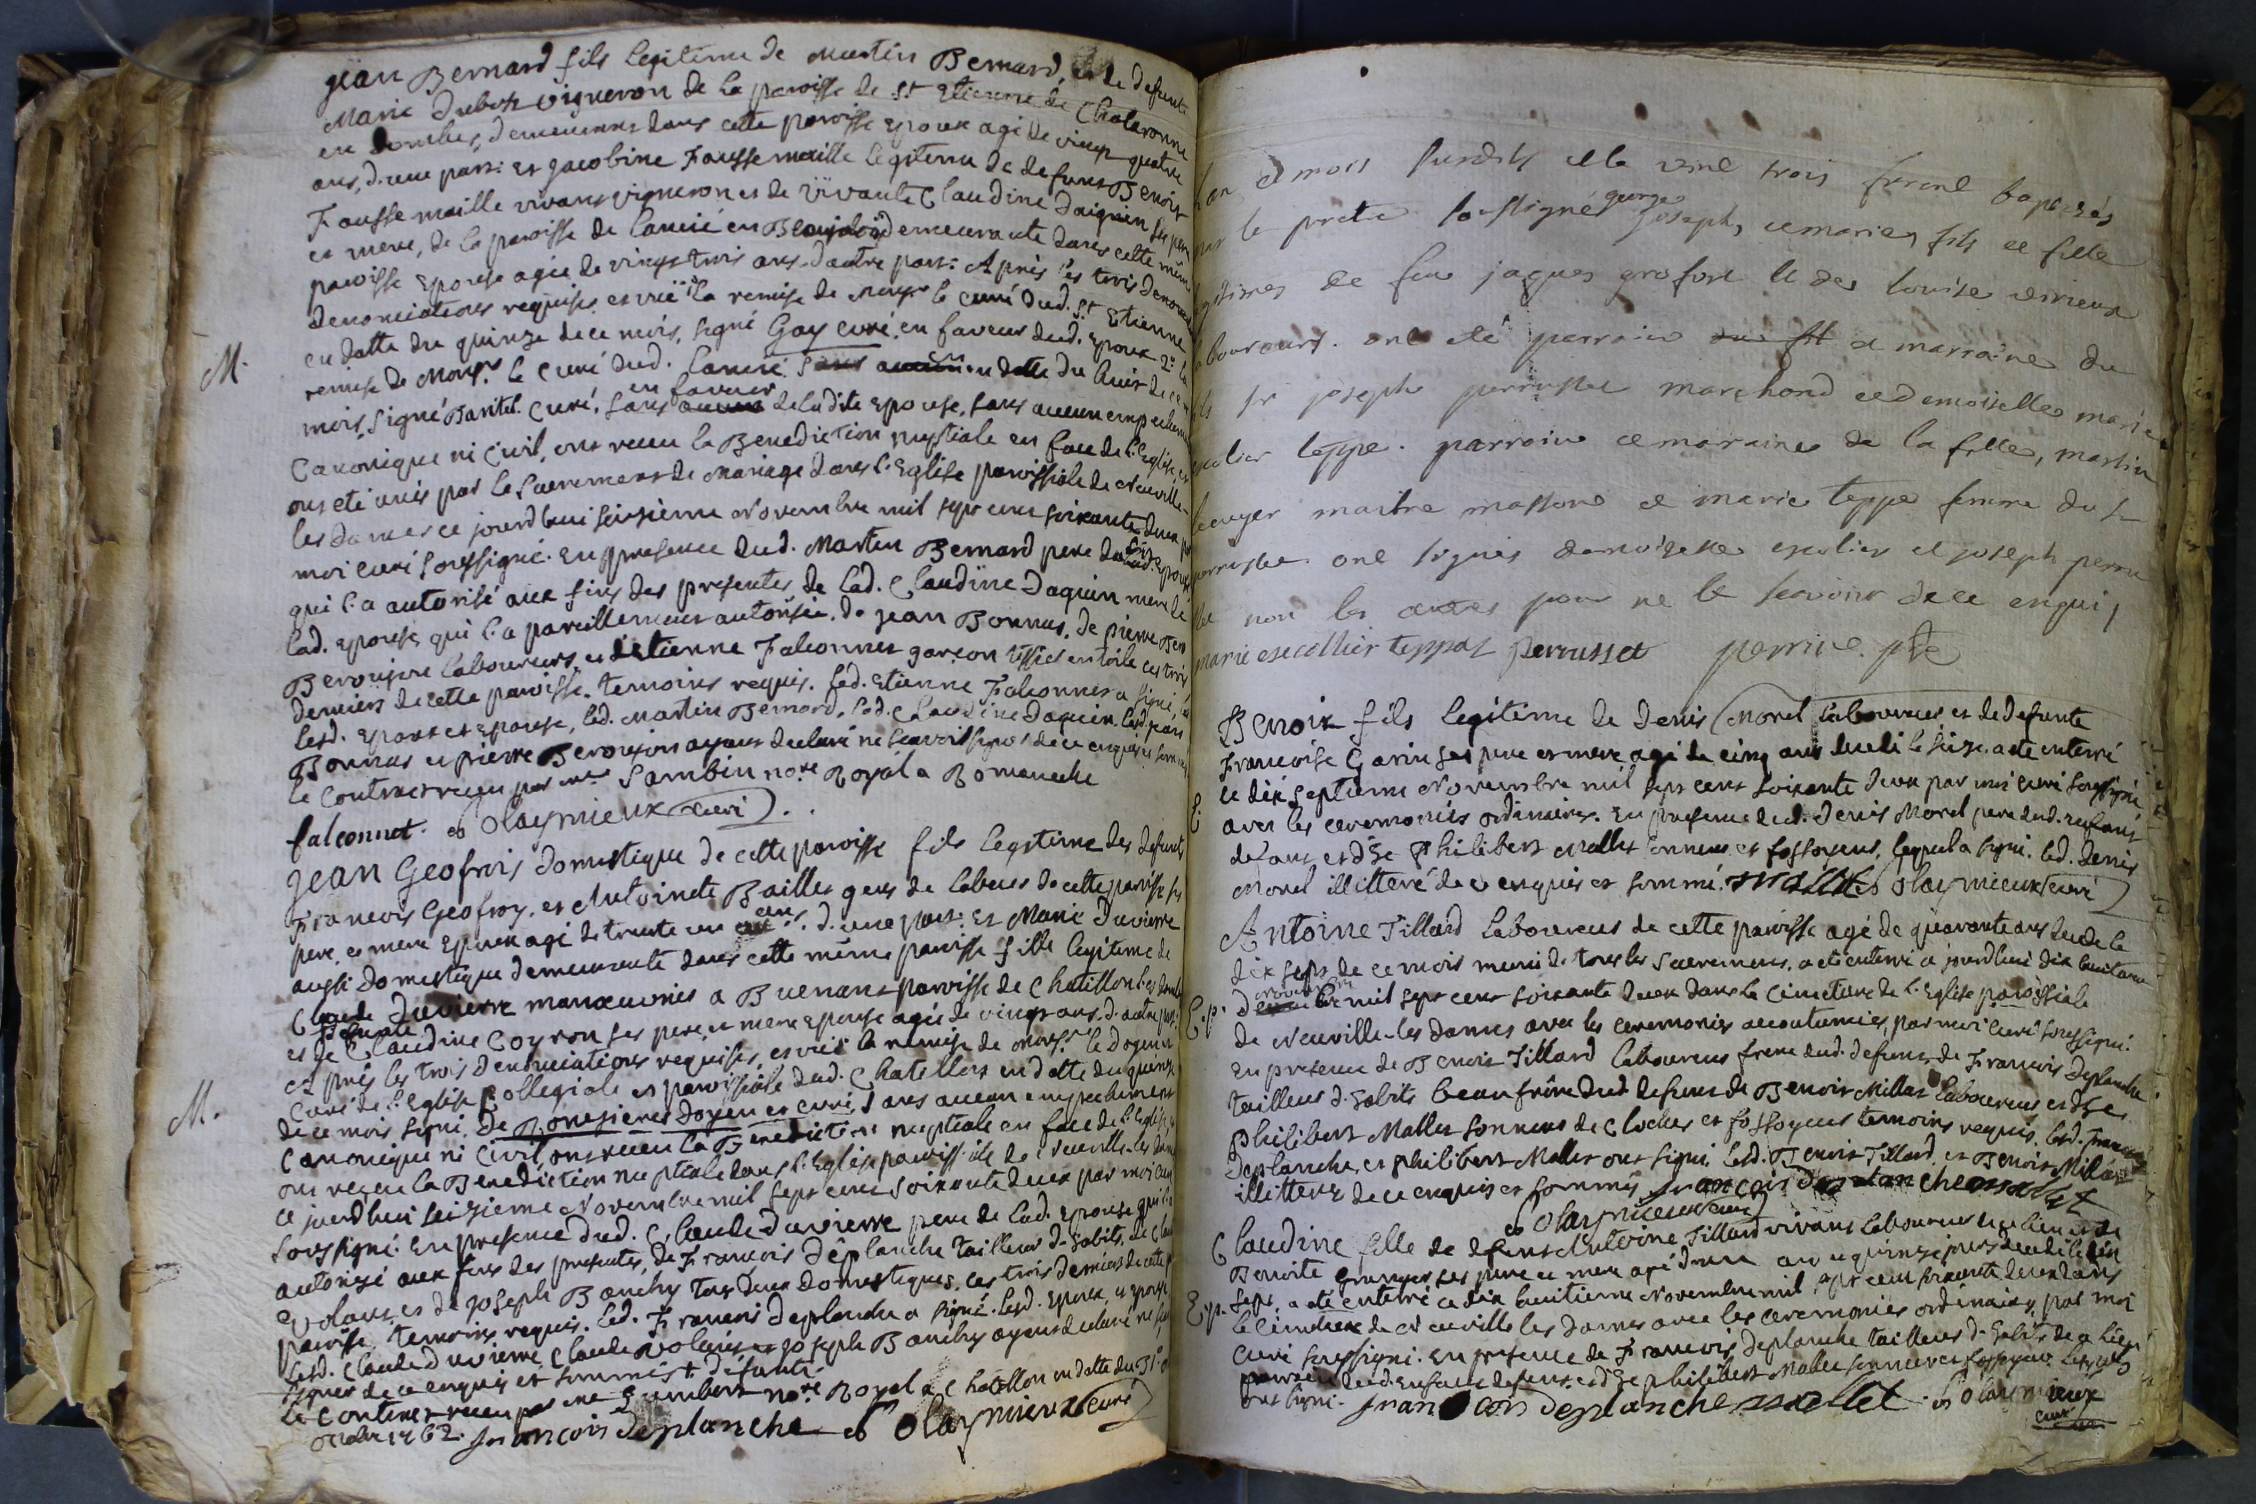 Jean Bernard fils legitime de Martin Bernard, et de defunte
Marie Dubost vigneron de la paroisse de St Etienne de Chalaronne
en Dombes, demeurant dans cette paroisse epoux agé de vingt quatre
ans, d'une part: et Jacobine Faussemaille legitime de defunt Benoit
Faussemaille vivant vigneron et de vivante Claudine Daiguin ses pere
et mere, de la paroisse de Lancié en Beaujolois demeurante dans cette même
paroisse epouse agée de vingt trois ans d'autre part: Après les trois
denonciations requises et vüe la remise de Monsr le curé dud. St Etienne
en datte du quinze de ce mois, signé Gay curé, en faveur dud. epoux 2° la
remise de Monsr. le curé dud. Lancié en datte du huit de ce
mois, signé curé, en faveur de ladite epouse, sans aucun empechement
Canonique ni Civil, ont receu la Benediction nuptiale en face de l'Eglise, et
ont eté unis par le Sacrement de Mariage dans l'Eglise paroissiale de Neuville-
les Dames ce jourdhui seizieme Novembre mil sept cent soixante deux par
moi curé soussigné. En presence dud. Martin Bernard pere dud. epoux
qui l'a autorisé aux fins des presentes, de lad. Claudine Daquin mere de
lad. epouse qui l'a pareillement autorisée, de Jean Bonnus, de pierre
Beroujon laboureurs, et d'Etienne Falconnet garçon tissier en toile ces trois
derniers de cette paroisse. temoins requis. led. Etienne Falconnet a signé,
lesd. epoux et epouse, led. Martin Bernard, lad. Claudine Daquin, led. Jean
Bonnus et pierre Beroujon ayant declaré ne sçavoir signer de ce enquis et sommés
le contract receu par me Sambin nore Royal a Romaneche
falconnet. Olaymieux curé.
M.
Jean Geofrois domestique de cette paroisse fils legitime des defunts
Francois Geofroy, et Antoinete Bailler gens de labeur de cette paroisse ses
pere, et mere epoux agé de trente un ans. d'une part: Et Marie Duvierre
aussi domestique demeurante dans cette même paroisse fille legitime de
Claude Duvierre manoeuvrier a Buenant paroisse de Chatillon les Dombes
et de defunte Claudine Coyron ses pere et mere epouse agée de vingt ans. d'autre part.
Après les trois denonciations requises, et vüe la remise de Monsr. le Doyen et
Curé de l'Eglise Collegiale et paroissiale dud. Chatillon en datte du quinze
de ce mois signé, Doyen et curé, sans aucun empechement
Canonique ni Civil, ont receu la Benediction nuptiale en face de l'Eglise,
ont receu la Benediction nuptiale dans l'Eglise paroissiale de Neuville-les Dames
ce jourdhui seizieme Novembre mil sept cent soixante deux par moi curé
soussigné. En presence dud. Claude Duvierre pere de lad. epouse qui l'a
autorisé aux fins des presentes, de Francois Deplanche tailleur d'habits, de Claude
Volant, et de Joseph Banchy tous deux domestiques, ces trois derniers de cette
paroisse temoins requis. led. Francois deplanche a signé. lesd. epoux, et epouse
lesd. Claude Duvierre, Claude Volant et Joseph Banchy ayant declaré ne sçavoir
signer de ce enquis et sommés † defunte
Le contract receu par me Humbert nore Royal a Chatillon en datte du 31
octobre 1762. francois deplanche Olaymieux curé
M.
l'an et mois susdits et le vint trois furent baptizés
par le pretre soussigné george joseph, et marie, fils et fille
legitimes de feu jaques grofort et de louise
laboureurs. ont eté parrain et marraine du
fils sr joseph perrusset marchand et demoiselle marie
escolier teppe. parrain et marraine de la fille, martin
maitre masson et marie teppe femme du sr
perrusset. ont signés demoiselle escolier et joseph perru
sset non les autres pour ne le scavoir de ce enquis,
marie escollier teppaz perrusset perrin. ptre
Benoit fils legitime de Denis Morel laboureur et de defunte
Francoise Garin ses pere et mere agé de cinq ans decedé le seize a eté enterré
ce dix septieme Novembre mil sept cent soixante deux par moi curé soussigné
avec les ceremonies ordinaires. En presence dud. Denis Morel pere dud. enfant
defunt et de Philibert Mallet sonneur et fossoyeur, lequel a signé. led. Denis
Morel illitteré de ce enquis et sommé. mallet Olaymieux curé
E.
Antoine Tillard laboureur de cette paroisse agé de quarante ans decedé le
dix sept de ce mois muni de tous les Sacremens, a eté enterré ce jourdhui dix huitieme
novembre mil sept cent soixante deux dans le Cimetiere de l'Eglise paroissiale
de Neuville-les Dames avec les ceremonies accoutumées, par moi curé soussigné.
En presence de Benoit Tillard laboureur frere dud. defunt, de Francois Deplanche
tailleur d'habits beaufrère dud. defunt de Benoit Millar laboureur et de
Philibert Mallet sonneur de cloches et fossoyeur temoins requis. lesd. francois
Deplanche, et philibert Mallet ont signé. lesd. Benoit Tillard, et Benoit Millar
illitteré de ce enquis et sommés francois deplanche mallet
Olaymieux curé
E.p.
Claudine fille de defunt Antoine Tillard vivant laboureur de ce lieu et de
Benoite Granger ses pere et mere agé d'un an et quinze jours decedé le dix
sept, a eté enterré ce dix huitieme Novembre mil sept cent soixante deux dans
le Cimetiere de Neuville les Dames avec les ceremonies ordinaires, par moi
curé soussigné. En presence de Francois Deplanche tailleur d'habits de ce lieu
parrain dud. enfant defunt et de philibert Mallet sonneur et fossoyeur. lesquels
ont signé. francois deplanche mallet. Olaymieux
curé
E.p.